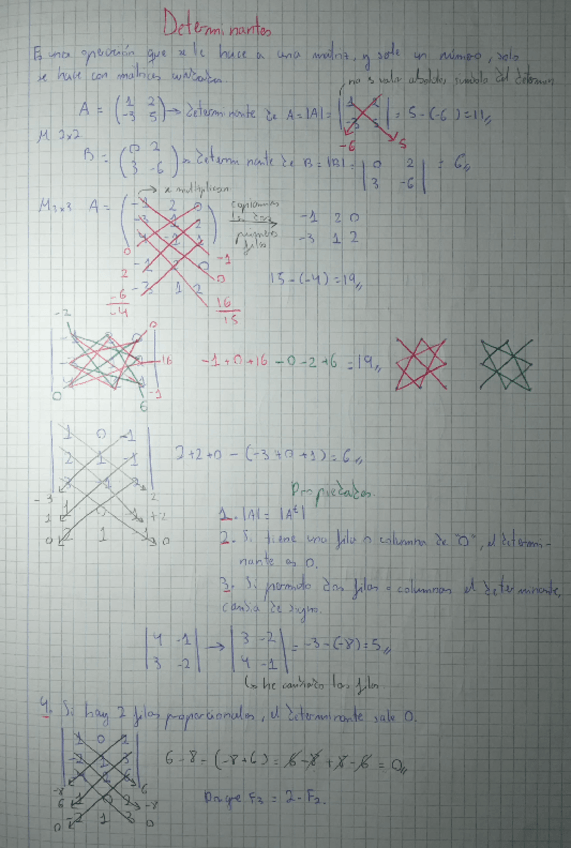 Determinantes
Es una operación que se le hace a una matriz, y sale un número, solo
se hace con matrices cuadradas
no es valor absoluto, símbolo del determin.
A = (1 2 -3 5) → Determinante de A = |A| = |1 2 -3 5| = 5 - (-6) = 11,,
-6 5
M 2x2
B = (0 2 3 -6) Determinante de B = |B| = |0 2 3 -6| = 6,,
→ se multiplican
M3x3 A = -1 2 0
-3 1 2
1 1
copiamos las dos primeras filas
-1 2 0
-3 1 2
0
2
-6
-4
-1
0
16
15
-1 2 0
-3 1 2
15 - (-4) = 19,,
-2 0
16
0 6 -1
-1 + 0 + 16 - 0 - 2 + 6 = 19,,
1 0 -1
2 1 -1
2 + 2 + 0 - (-3 + 0 + 1) = 6,,
-3 2
1 +2
0 0
2 1
Propiedades.
1. |A| = |Aᵗ|
2. Si tiene una fila o columna de "0", el determi-
nante es 0.
3. Si permuto dos filas o columnas el determinante,
cambia de signo.
|4 -1 3 -2| → |3 -2 4 -1| = -3 - (-8) = 5,,
↳ he cambiado las filas
4. Si hay 2 filas proporcionales, el determinante vale 0.
1 0 2
-2 1
6 - 8 - (-8 + 6) = 6 - 8 + 8 - 6 = 0,,
-8 6
6 -8
0 -2 1 2 0
Porque F₃ = 2 · F₂.